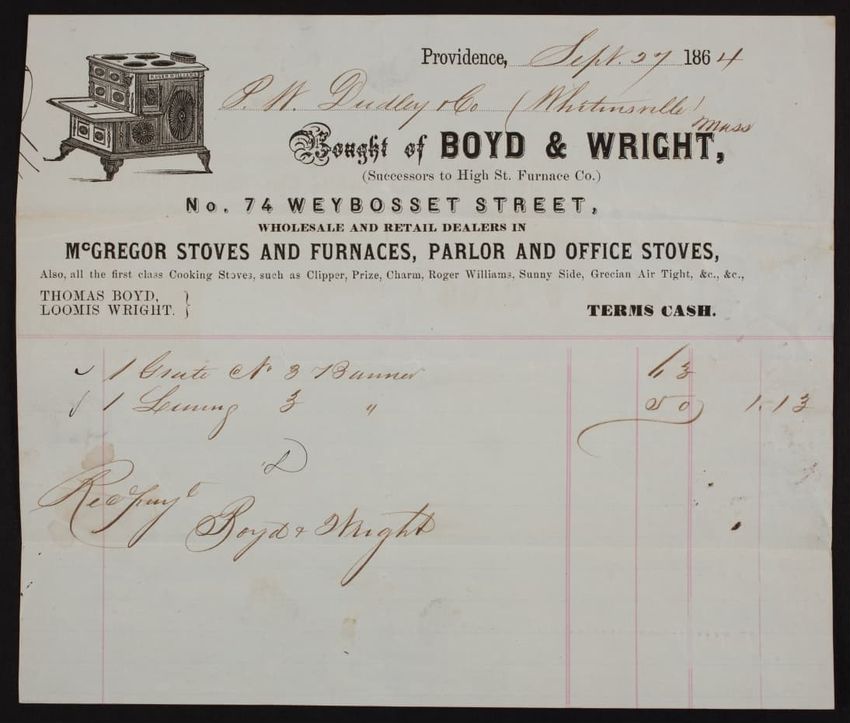 ROGER WILLIAMS
Providence, Sept. 27 1864
P. W. Dudley & Co (Whitinsville) Mass
Bought of BOYD & WRIGHT,
(Successors to High St. Furnace Co.)
No. 74 WEYBOSSET STREET,
WHOLESALE AND RETAIL DEALERS IN
McGREGOR STOVES AND FURNACES, PARLOR AND OFFICE STOVES,
Also, all the first class Cooking Stoves, such as Clipper, Prize, Charm, Roger Williams, Sunny Side, Grecian Air Tight, &c., &c.,
THOMAS BOYD, }
LOOMIS WRIGHT. }
TERMS CASH.
1 Grate No 3 Banner 63
1 Lining 3 " 50 1.13
Recd payt
Boyd & Wright